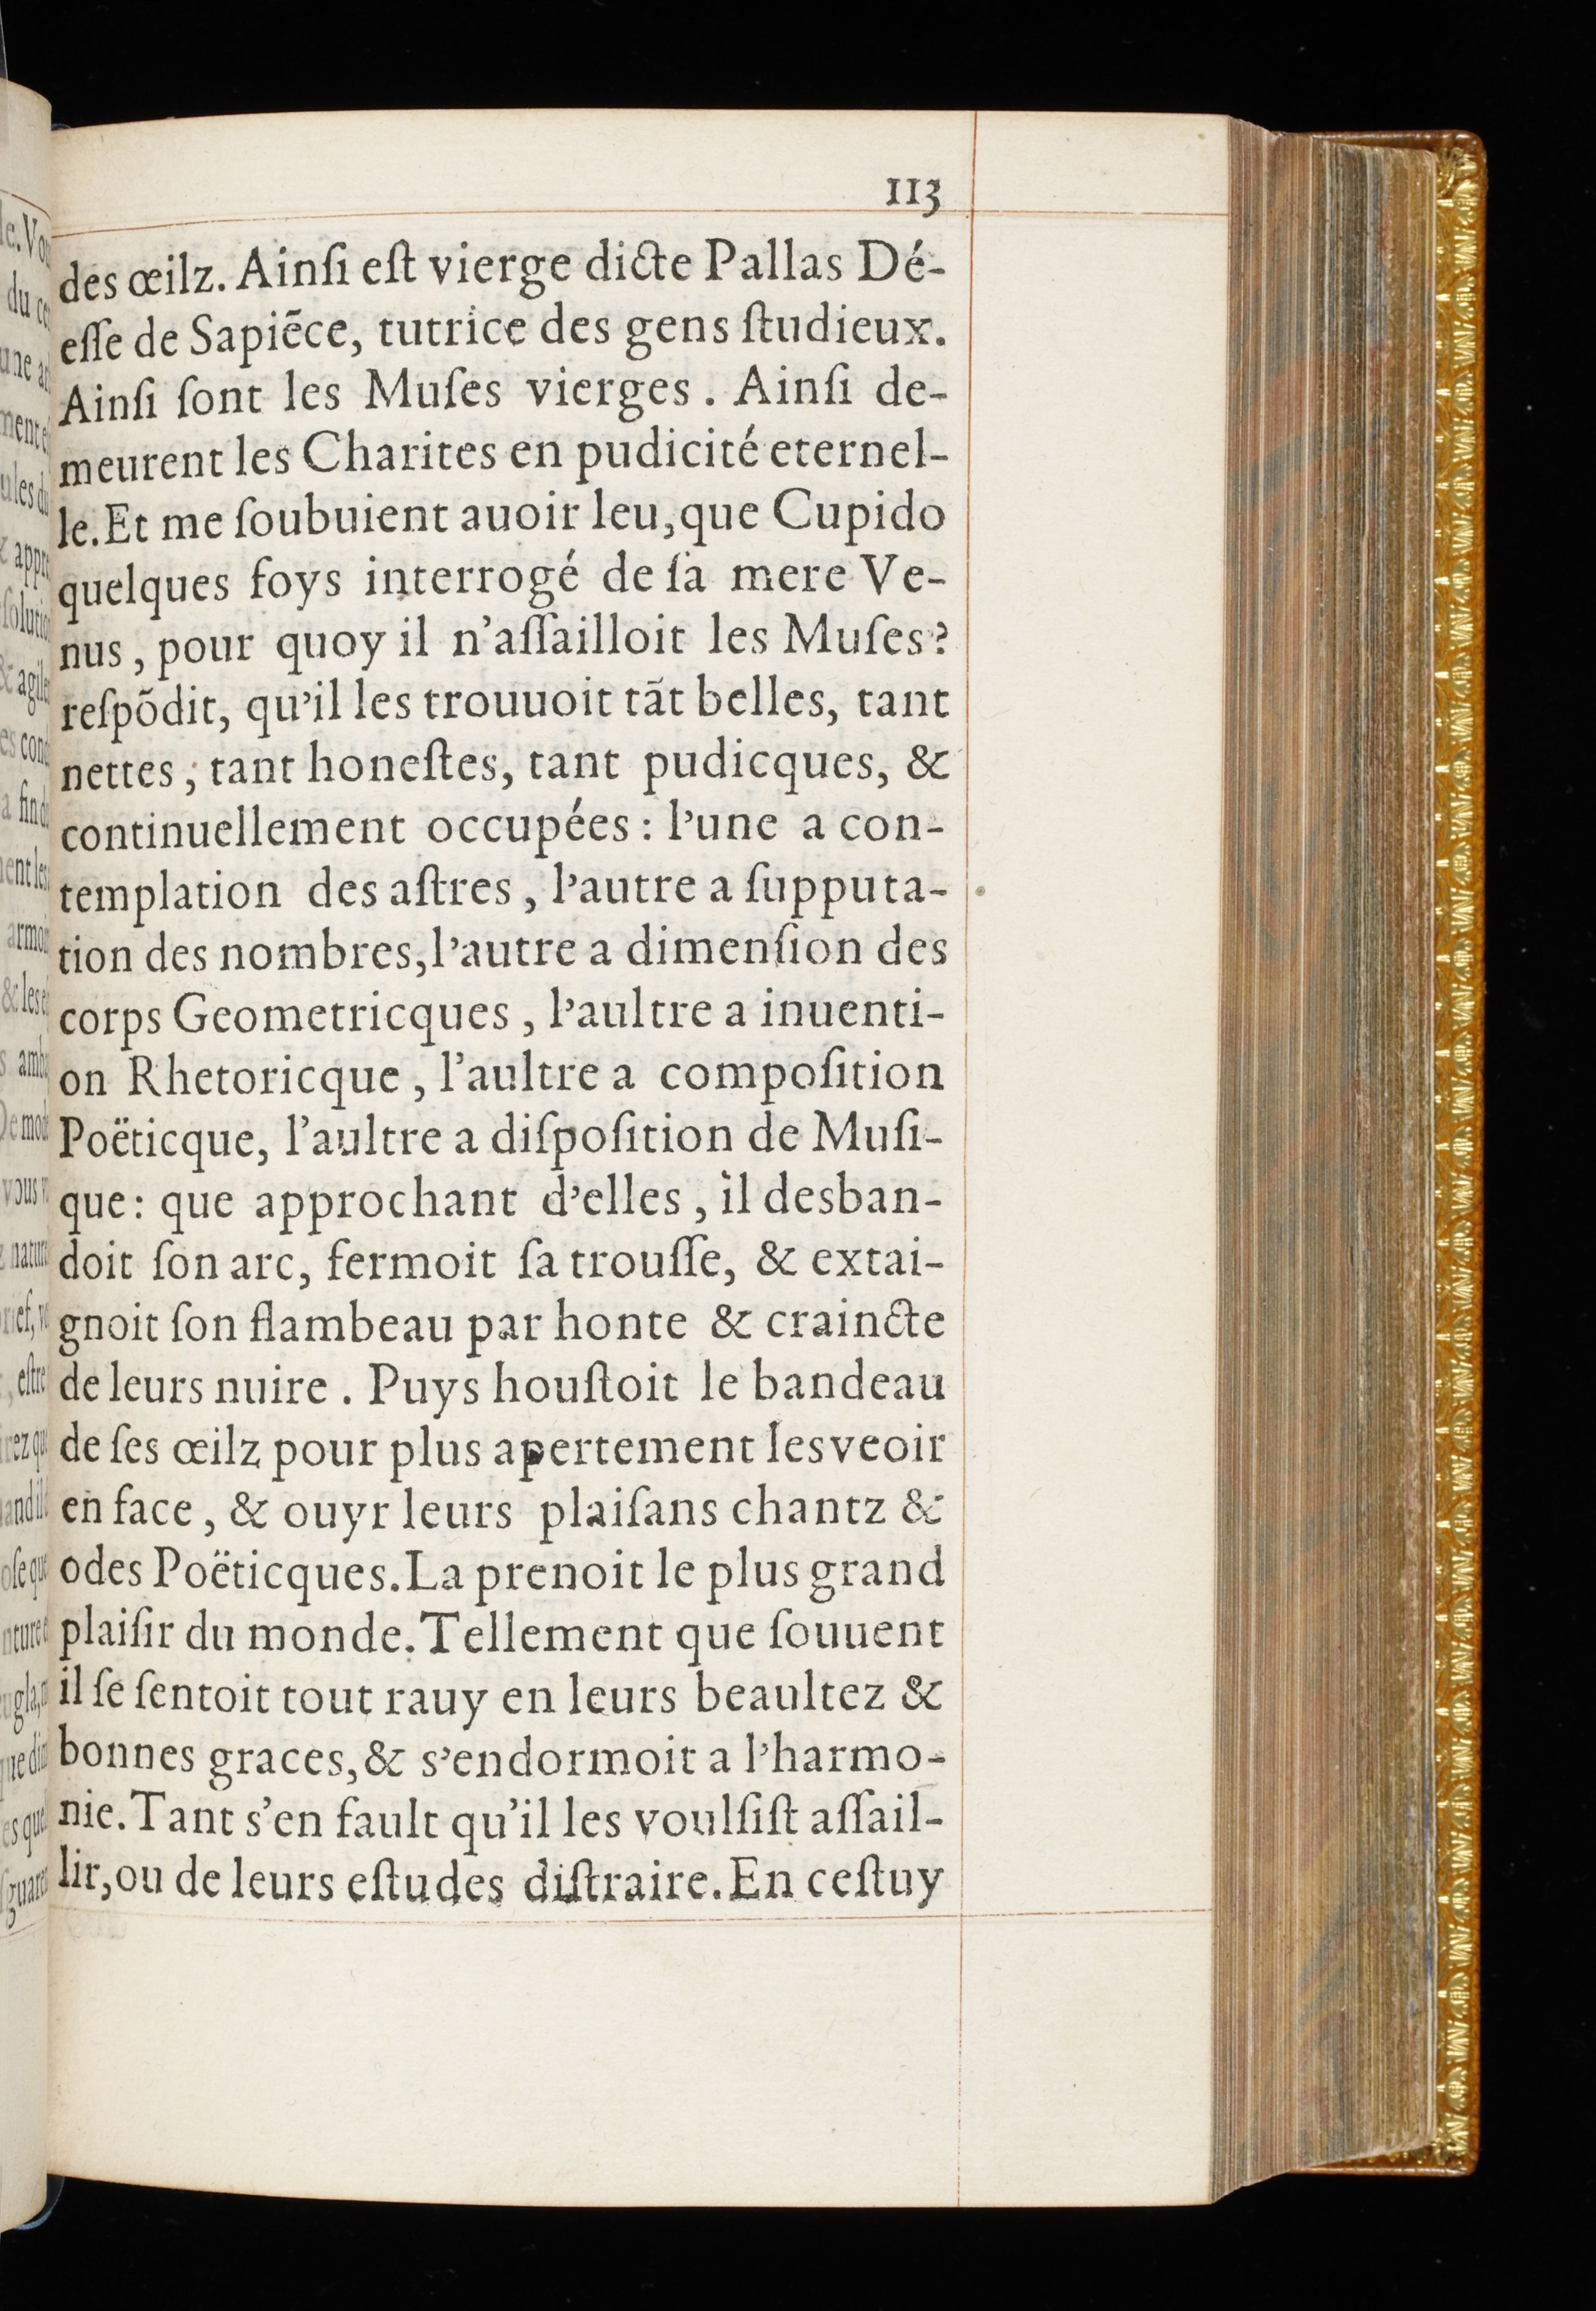 113
des œilz. Ainſi eſt vierge dicte Pallas Dé-
eſſe de Sapiēce, tutrice des gens ſtudieux.
Ainſi ſont les Muſes vierges. Ainſi de-
meurent les Charites en pudicité eternel-
le. Et me ſoubuient auoir leu, que Cupido
quelques foys interrogé de ſa mere Ve-
nus, pour quoy il n'aſſailloit les Muſes?
reſpõdit, qu'il les trouuoit tãt belles, tant
nettes, tant honeſtes, tant pudicques, &
continuellement occupées: l'une a con-
templation des aſtres, l'autre a ſupputa-
tion des nombres, l'autre a dimenſion des
corps Geometricques, l'aultre a inuenti-
on Rhetoricque, l'aultre a compoſition
Poëticque, l'aultre a diſpoſition de Muſi-
que: que approchant d'elles, il desban-
doit ſon arc, fermoit ſa trouſſe, & extai-
gnoit ſon flambeau par honte & craincte
de leurs nuire. Puys houſtoit le bandeau
de ſes œilz pour plus apertement les veoir
en face, & ouyr leurs plaiſans chantz &
odes Poëticques. La prenoit le plus grand
plaiſir du monde. Tellement que ſouuent
il ſe ſentoit tout rauy en leurs beaultez &
bonnes graces, & s'endormoit a l'harmo-
nie. Tant s'en fault qu'il les voulſiſt aſſail-
lir, ou de leurs eſtudes diſtraire. En ceſtuy